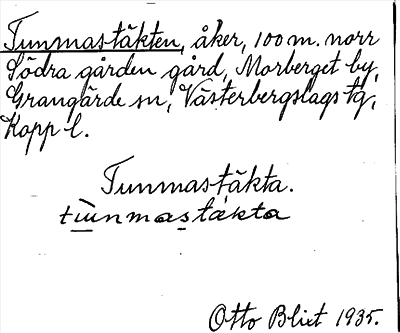 Tunmastäkten, åker, 100 m. norr
Södra gården gård, Morberget by,
Grangärde sn, Västerbergslags tg,
Kopp l.
Tunmastäkta.
tùnmastäkta
Otto Blixt 1935.